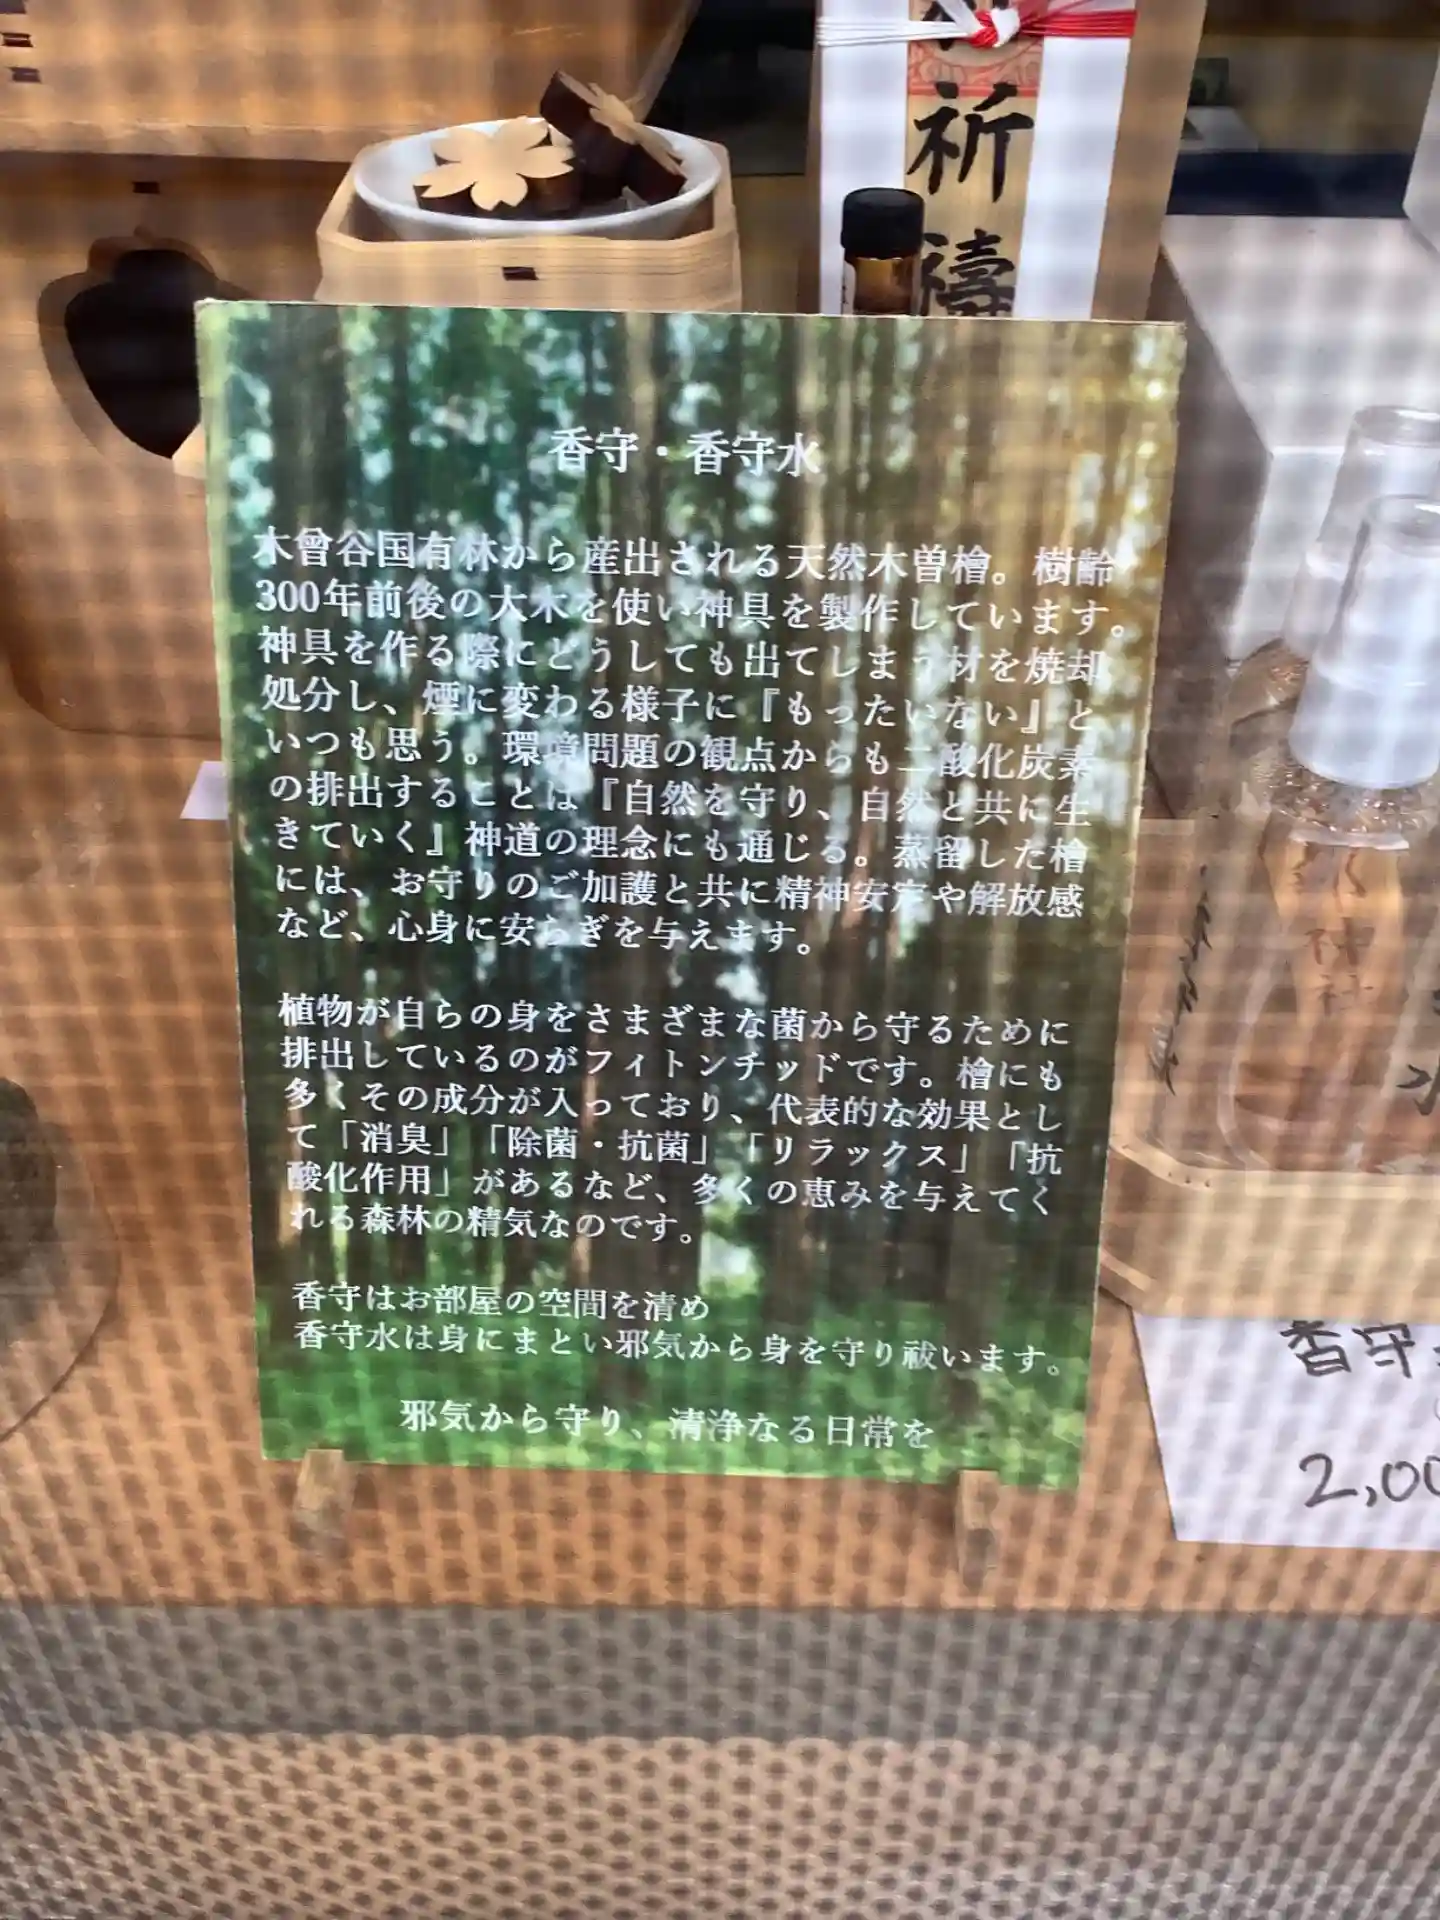 祈
禱
香守・香守水
木曾谷国有林から産出される天然木曽檜。樹齢
300年前後の大木を使い神具を製作しています。
神具を作る際にどうしても出てしまう材を焼却
処分し、煙に変わる様子に『もったいない』と
いつも思う。環境問題の観点からも二酸化炭素
の排出することは『自然を守り、自然と共に生
きていく』神道の理念にも通じる。蒸留した檜
には、お守りのご加護と共に精神安定や解放感
など、心身に安らぎを与えます。
植物が自らの身をさまざまな菌から守るために
排出しているのがフィトンチッドです。檜にも
多くその成分が入っており、代表的な効果とし
て「消臭」「除菌・抗菌」「リラックス」「抗
酸化作用」があるなど、多くの恵みを与えてく
れる森林の精気なのです。
香守はお部屋の空間を清め
香守水は身にまとい邪気から身を守り祓います。
邪気から守り、清浄なる日常を
香守
2,00